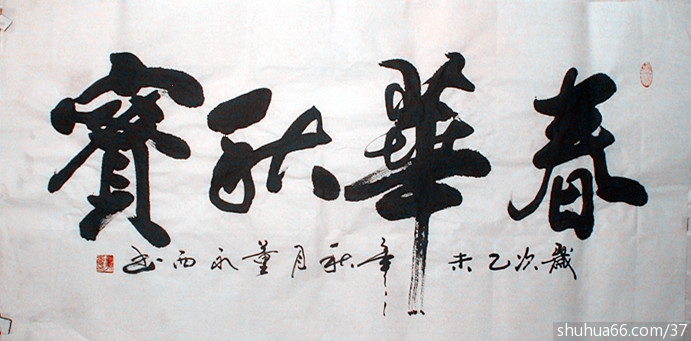 春華秋實
歲次乙未年之秋月董永西書
shuhua66.com/37